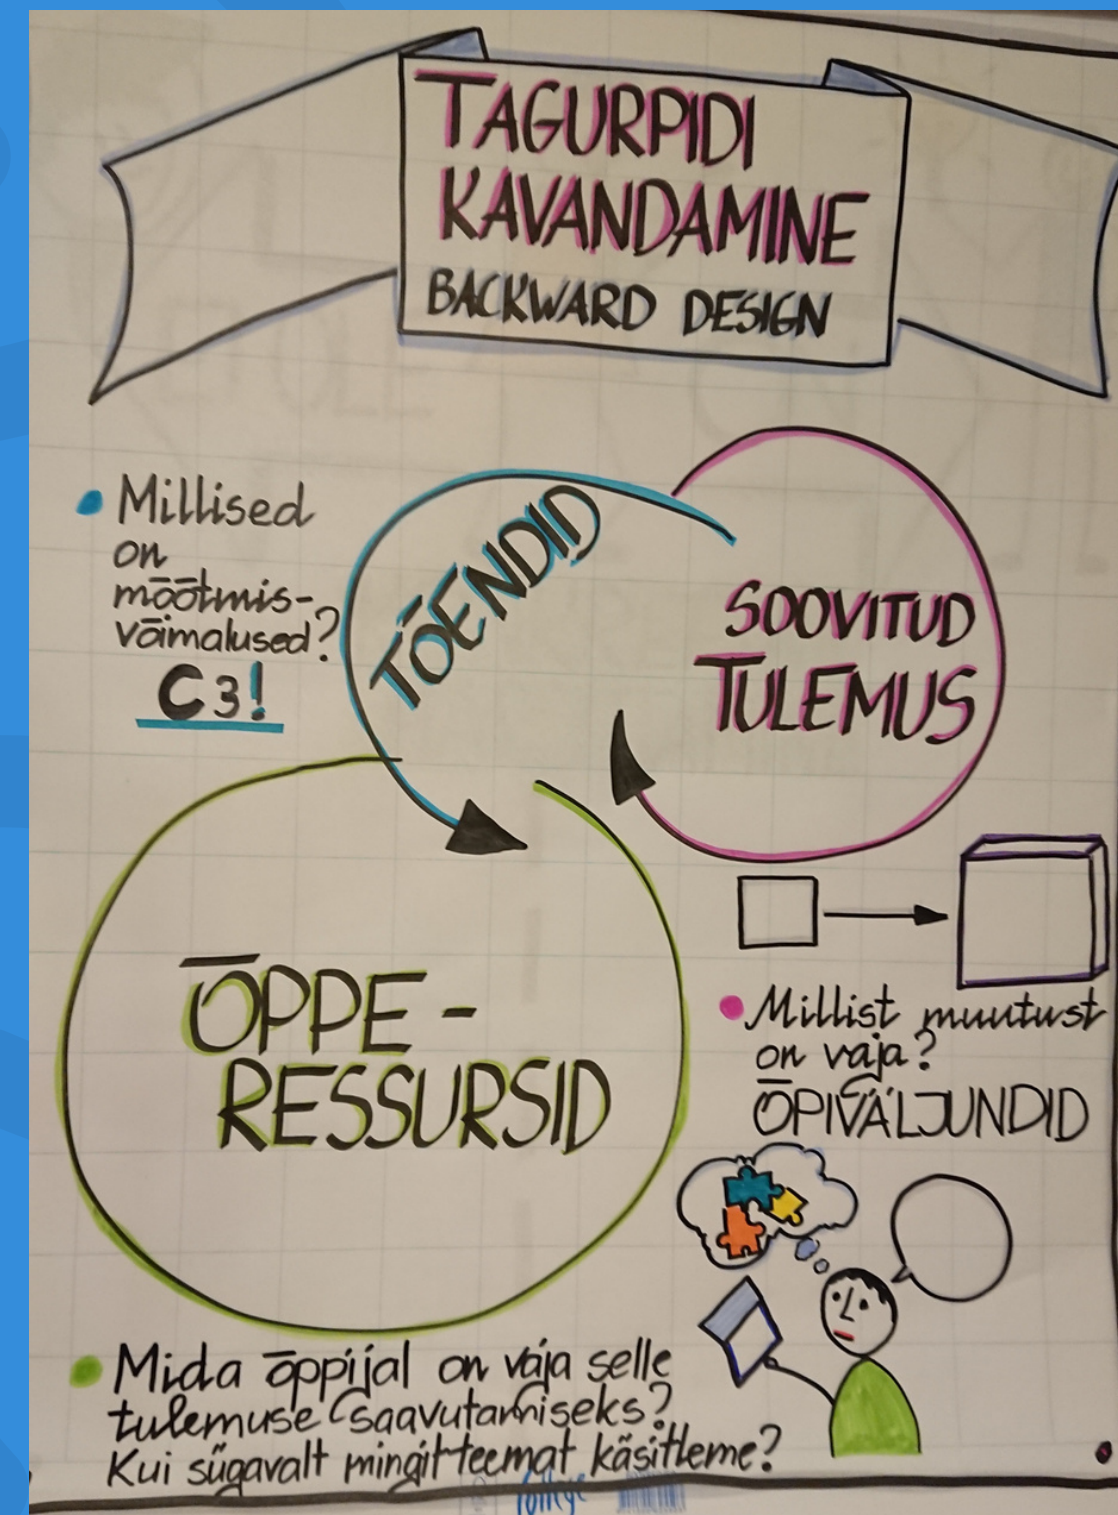 TAGURPIDI
KAVANDAMINE
BACKWARD DESIGN
• Millised
on
mõõtmis-
võimalused?
C3!
TÕENDID
SOOVITUD
TULEMUS
ÕPPE-
RESSURSID
• Millist muutust
on vaja?
ÕPIVÄLJUNDID
• Mida õppijal on vaja selle
tulemuse saavutamiseks?
Kui sügavalt mingit teemat käsitleme?